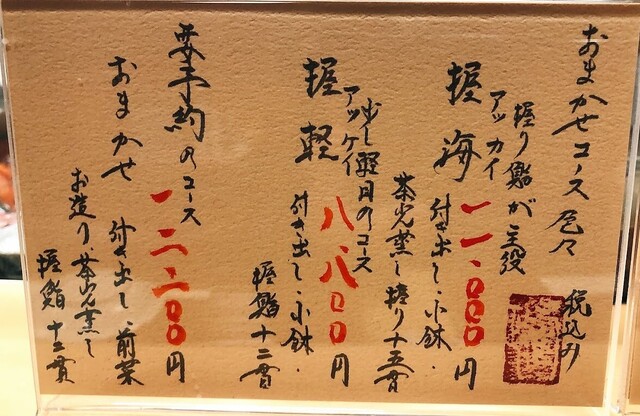 おまかせコース色々 税込み
握り鮨が主役
アッカイ
握海 一一、〇〇〇円
付き出し・小鉢・
茶碗蒸し 握り十五貫
少し軽目のコース
アッケイ
握軽 八、八〇〇円
付き出し・小鉢・
握鮨十二貫
要予約のコース
おまかせ 一二、一〇〇円
付き出し、前菜
お造り・茶碗蒸し
握鮨 十二貫